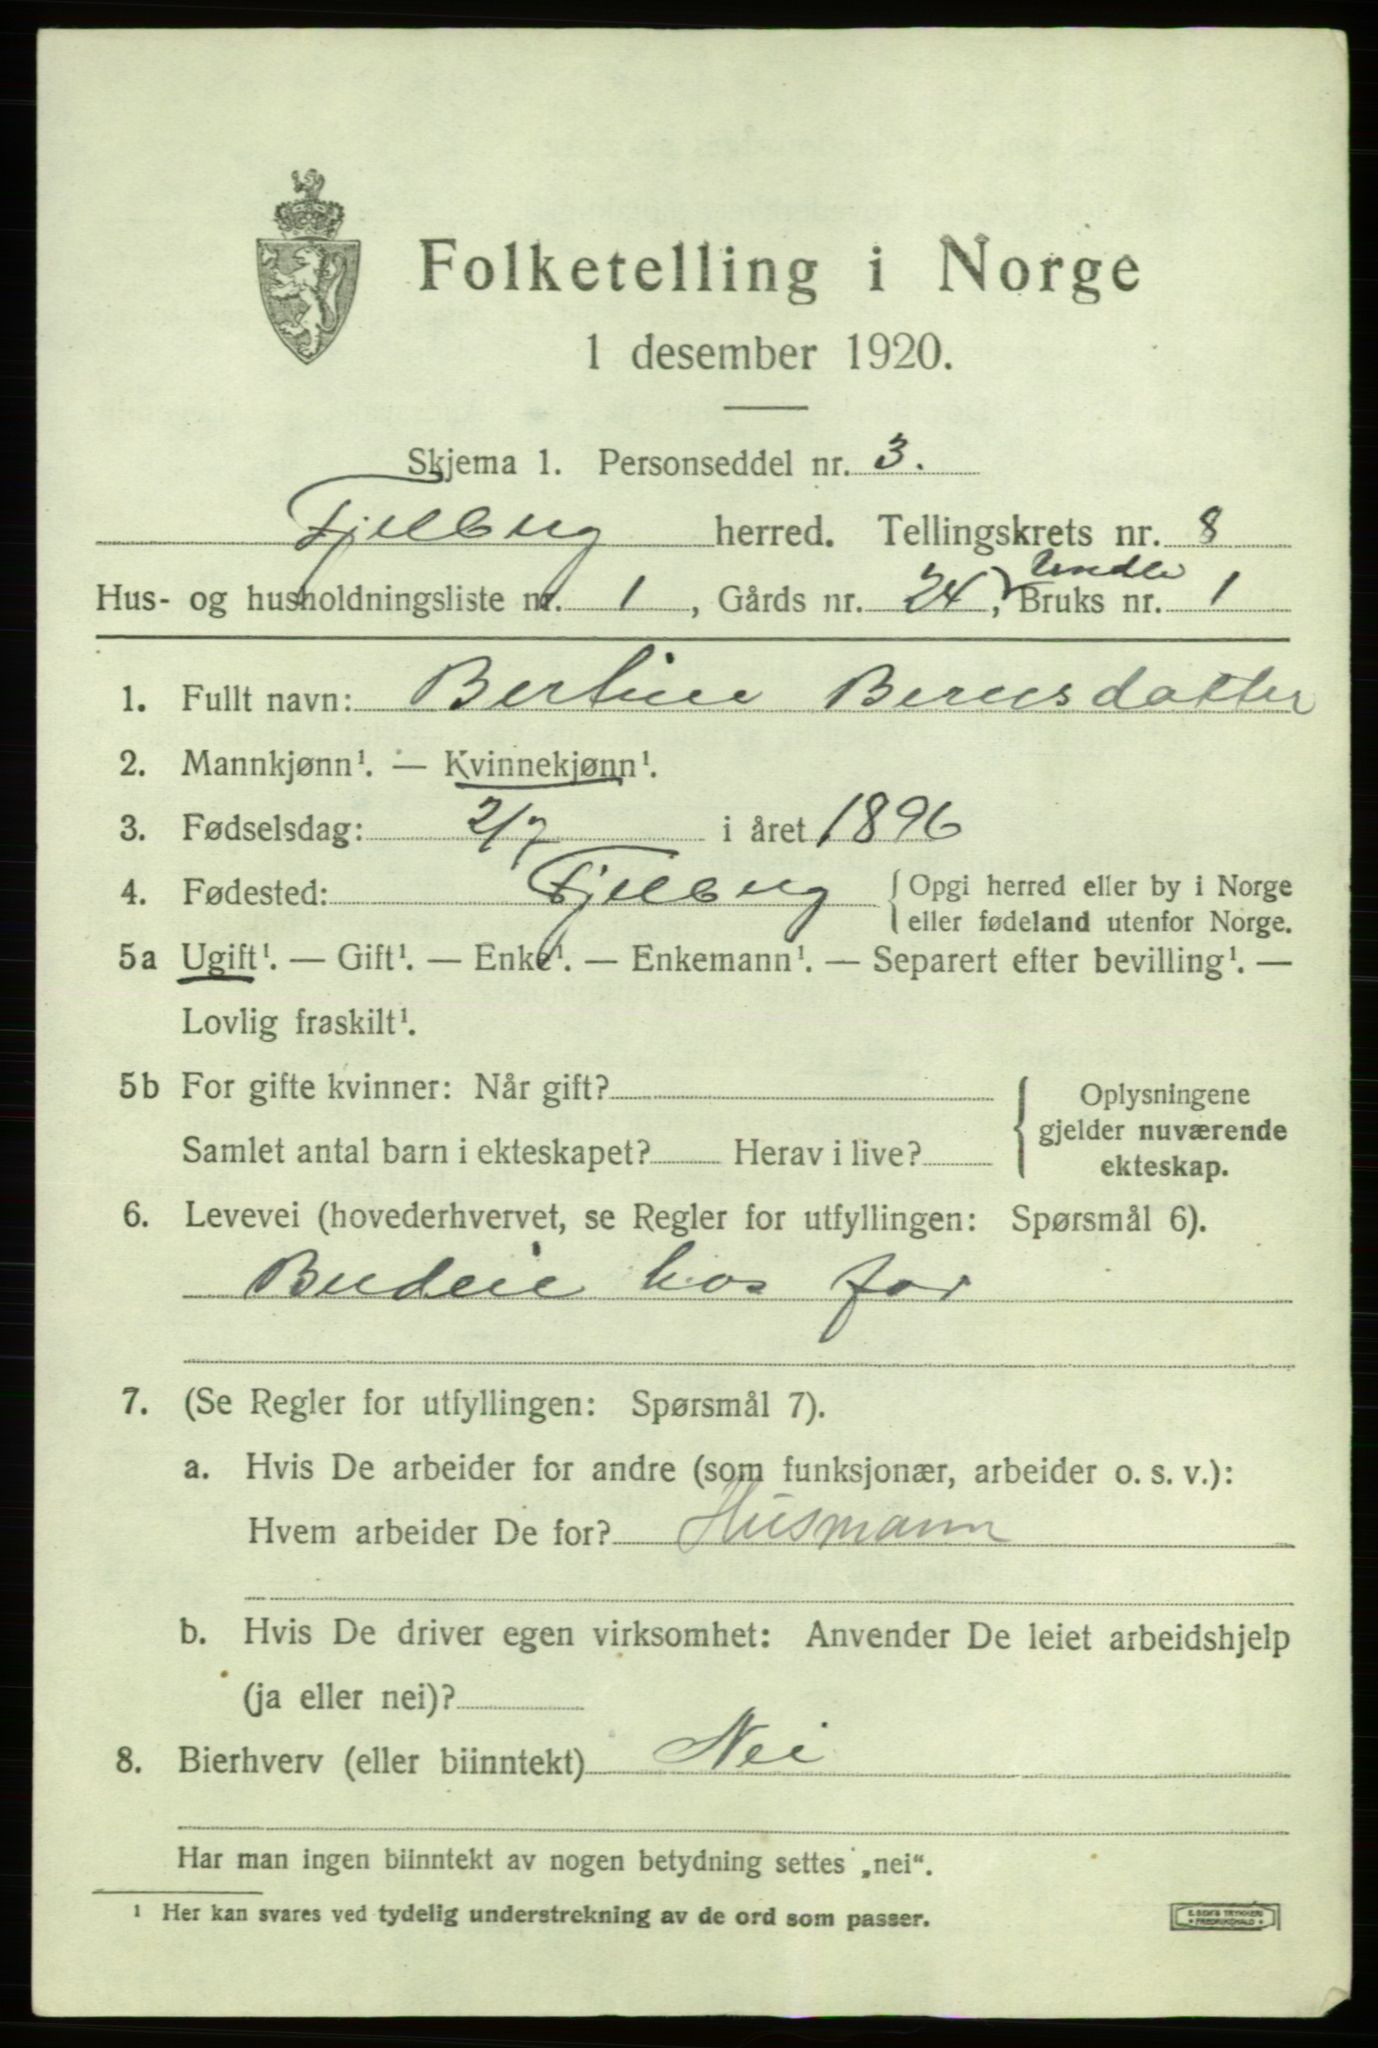 Folketelling i Norge
1 desember 1920.
Skjema 1. Personseddel nr. 3.
Fjelberg herred. Tellingskrets nr. 8
Hus- og husholdningsliste nr. 1, Gårds nr. 24, Bruks nr. 1
1. Fullt navn: Bertine Berntsdatter
2. Mannkjønn¹. — Kvinnekjønn¹.
3. Fødselsdag: 2/7 i året 1896
4. Fødested: Fjelberg { Opgi herred eller by i Norge
eller fødeland utenfor Norge.
5a Ugift¹. — Gift¹. — Enke¹. — Enkemann¹. — Separert efter bevilling¹. —
Lovlig fraskilt¹.
5b For gifte kvinner: Når gift?
Samlet antal barn i ekteskapet? Herav i live?
Oplysningene
gjelder nuværende
ekteskap.
6. Levevei (hovederhvervet, se Regler for utfyllingen: Spørsmål 6).
Budeie hos far
7. (Se Regler for utfyllingen: Spørsmål 7).
a. Hvis De arbeider for andre (som funksjonær, arbeider o. s. v.):
Hvem arbeider De for? Husmann
b. Hvis De driver egen virksomhet: Anvender De leiet arbeidshjelp
(ja eller nei)?
8. Bierhverv (eller biinntekt) Nei
Har man ingen biinntekt av nogen betydning settes „nei“.
¹ Her kan svares ved tydelig understrekning av de ord som passer.